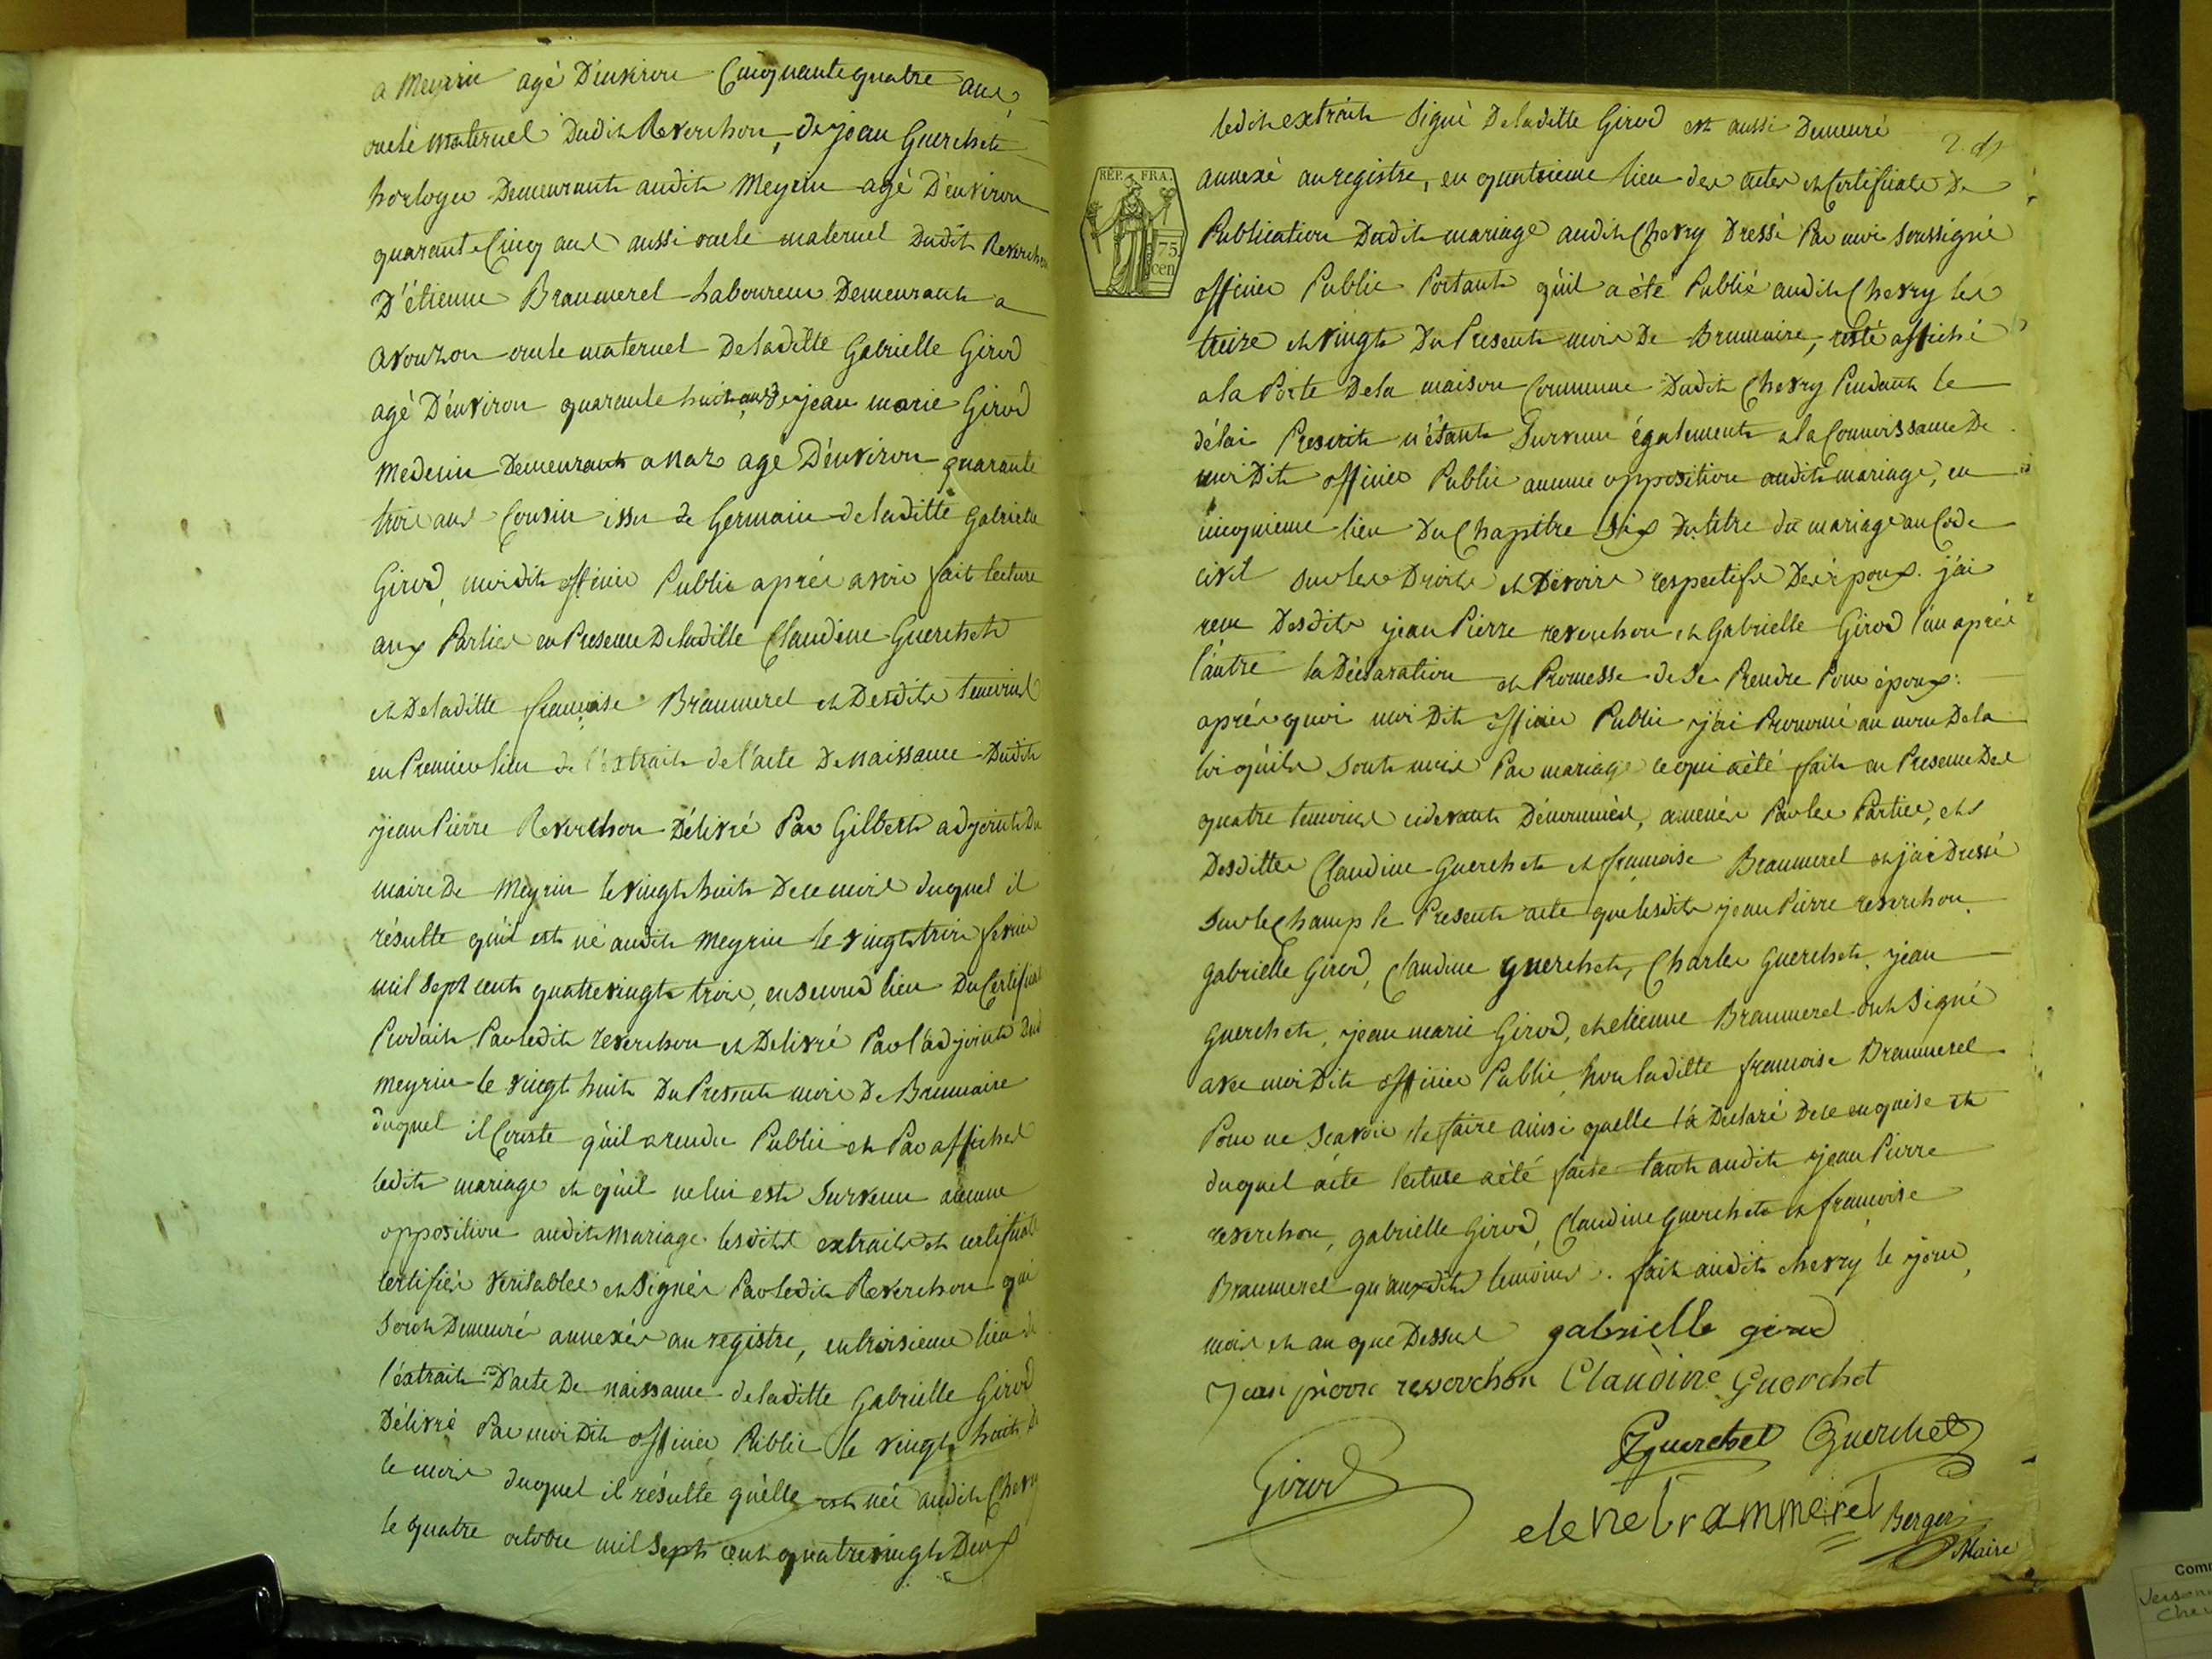 a Meyrin agé D'environ Cinquante quatre ans,
oncle maternel Dudit Reverchon, de jean Guerchet
horloger Demeurant audit Meyrin agé D'environ
quarante Cinq ans aussi oncle maternel Dudit Reverchon
D'étienne Brammerel Laboureur Demeurant a
avouzon oncle maternel De laditte Gabrielle Girod
agé D'environ quarante huit ans De jean marie Girod
Medecin Demeurant a Naz agé D'environ quarante
trois ans Cousin issu de Germain de laditte Gabrielle
Girod, moi dit officier Public aprés avoir fait lecture
aux Parties en Presence De laditte Claudine Guerchet
et De laditte françoise Brammerel et Desdits temoins
en Premier lieu de l'extrait de l'acte De naissance Dudit
jean Pierre Reverchon Délivré Par Gilbert adjoint Du
maire De Meyrin le vingt huit De ce mois duquel il
résulte qu'il est né audit Meyrin le vingt trois fevrier
mil Sept cent quatre vingt trois, en second lieu Du Certificat
Produit Par ledit reverchon et Delivré Par l'adjoint Dud
Meyrin le vingt huit Du Present mois De Brumaire
duquel il Conste qu'il a rendu Public et Par affiches
ledit mariage et qu'il ne lui est Survenu aucune
opposition audit Mariage. lesdits extraits et certificats
certifiés veritables et Signés Par ledit Reverchon qui
Sont Demeurés annexés au registre, en troisieme lieu de
l'extrait D'acte De naissance de laditte Gabrielle Girod
Délivré Par moi Dit officier Public le vingt huit De
ce mois duquel il résulte qu'elle est née audit Chevry
le quatre octobre mil Sept cent quatre vingt Deux
ledit extrait Signé De laditte Girod est aussi Demeuré
annexé au registre, en quatrieme lieu des actes et Certificats De
Publication Dudit mariage audit Chevry Dressé Par moi Soussigné
officier Public Portant qu'il a été Publié audit Chevry les
treize et vingt Du Present mois De Brumaire, resté affiché
a la Porte De la maison Commune Dudit Chevry Pendant le
délai Prescrit n'étant Survenu également a la Connoissance De
moi Dit officier Public aucune opposition audit mariage, en
cinquieme lieu Du Chapitre Six Du titre du mariage au Code
civil Sur les Droits et Devoirs respectifs Des époux. j'ai
reçu Desdits jean Pierre reverchon et Gabrielle Girod l'un aprés
l'autre la Déclaration et Promesse de Se Prendre Pour époux:
aprés quoi moi Dit officier Public j'ai Prononcé au nom De la
loi qu'ils Sont unis Par mariage ce qui a été fait en Presence Des
quatre temoins cidevant Dénommés, amenés Par les Parties, et
Desdittes Claudine Guerchet et françoise Brammerel et j'ai Dressé
Sur le Champ le Present acte que lesdits jean Pierre reverchon
gabrielle Girod, Claudine Guerchet, Charles Guerchet, jean
Guerchet, jean marie Girod, et etienne Brammerel ont Signé
avec moi Dit officier Public, non laditte francoise Brammerel
Pour ne Scavoir le faire ainsi quelle l'a Declaré De ce enquise et
duquel acte lecture a été faite tant audit jean Pierre
reverchon, gabrielle Girod, Claudine Guerchet et françoise
Brammerel qu'auxdits temoins. fait audit chevry le jour,
mois et an que Dessus gabrielle girod
Jean pierre reverchon Claudine Guerchet
Guerchet Guerchet
Girod
etene brammerel Berger
Maire
RÉP. FRA.
75
cen